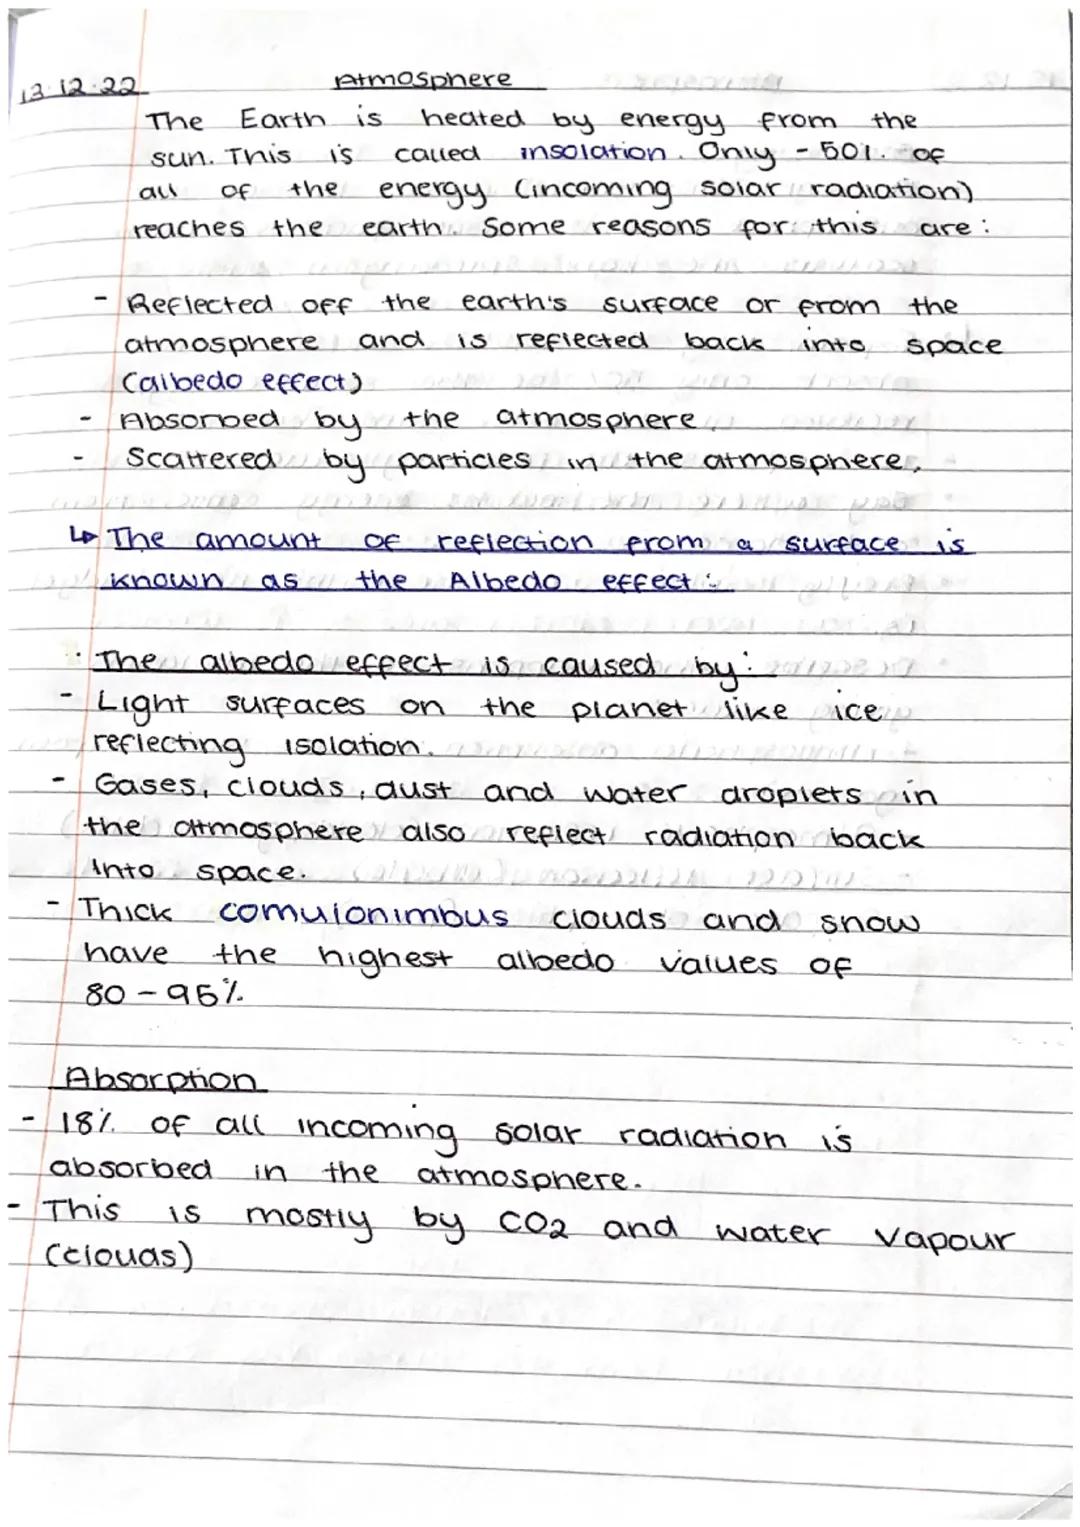 13.12.22 Atmosphere
The Earth is heated by energy from the
sun. This is called insolation. Only - 50% of
all of the energy (incoming solar radiation)
reaches the earth. Some reasons for this are :
- Reflected off the earth's surface or from the
atmosphere and is reflected back into space
(albedo effect)
- Absorbed by the atmosphere.
- Scattered by particles in the atmosphere.
↳ The amount of reflection from a surface is
known as the Albedo effect :
· The albedo effect is caused by :
- Light surfaces on the planet like ice
reflecting isolation.
- Gases, clouds, dust and water droplets in
the atmosphere also reflect radiation back
into space.
- Thick comulonimbus clouds and snow
have the highest albedo values of
80 - 95%
Absorption
- 18% of all incoming solar radiation is
absorbed in the atmosphere.
- This is mostly by CO2 and water vapour
(clouds)